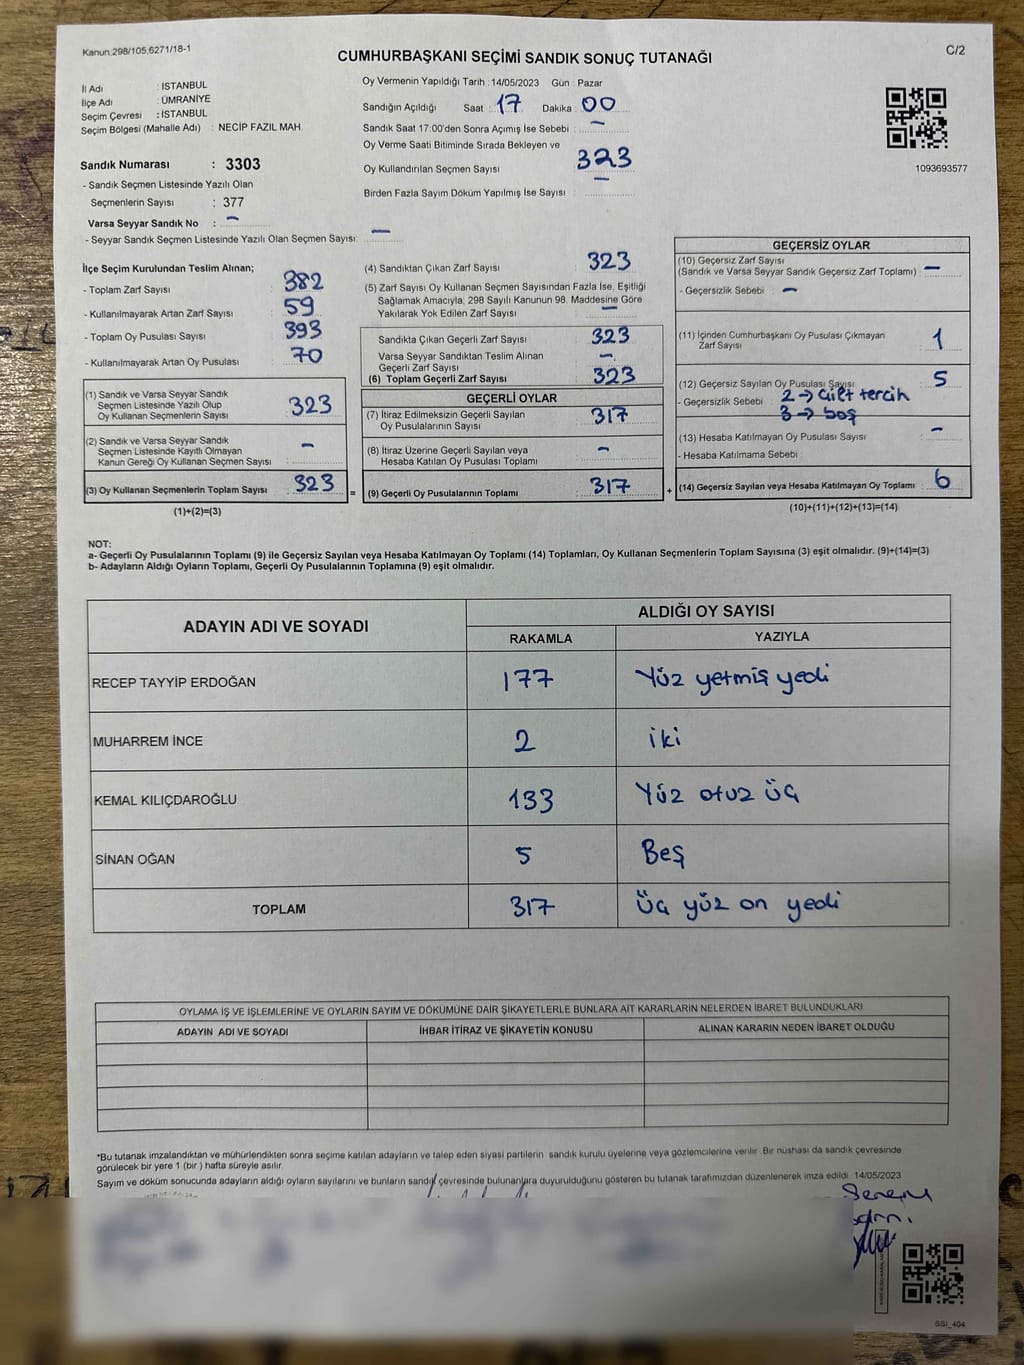 Kanun:298/105,6271/18-1
CUMHURBAŞKANI SEÇİMİ SANDIK SONUÇ TUTANAĞI
C/2
İl Adı : İSTANBUL
İlçe Adı : ÜMRANİYE
Seçim Çevresi : İSTANBUL
Seçim Bölgesi (Mahalle Adı) : NECİP FAZIL MAH.
Sandık Numarası : 3303
- Sandık Seçmen Listesinde Yazılı Olan
Seçmenlerin Sayısı : 377
Varsa Seyyar Sandık No : –
- Seyyar Sandık Seçmen Listesinde Yazılı Olan Seçmen Sayısı: –
Oy Vermenin Yapıldığı Tarih : 14/05/2023 Gün : Pazar
Sandığın Açıldığı Saat : 17 Dakika : 00
Sandık Saat 17:00'den Sonra Açımış İse Sebebi : –
Oy Verme Saati Bitiminde Sırada Bekleyen ve
Oy Kullandırılan Seçmen Sayısı : 323
Birden Fazla Sayım Döküm Yapılmış İse Sayısı : –
1093693577
İlçe Seçim Kurulundan Teslim Alınan;
- Toplam Zarf Sayısı : 382
- Kullanılmayarak Artan Zarf Sayısı : 59
- Toplam Oy Pusulası Sayısı : 393
- Kullanılmayarak Artan Oy Pusulası : 70
(1) Sandık ve Varsa Seyyar Sandık
Seçmen Listesinde Yazılı Olup
Oy Kullanan Seçmenlerin Sayısı : 323
(2) Sandık ve Varsa Seyyar Sandık
Seçmen Listesinde Kayıtlı Olmayan
Kanun Gereği Oy Kullanan Seçmen Sayısı : –
(3) Oy Kullanan Seçmenlerin Toplam Sayısı : 323
(1)+(2)=(3)
=
(4) Sandıktan Çıkan Zarf Sayısı : 323
(5) Zarf Sayısı Oy Kullanan Seçmen Sayısından Fazla İse, Eşitliği
Sağlamak Amacıyla, 298 Sayılı Kanunun 98. Maddesine Göre
Yakılarak Yok Edilen Zarf Sayısı : –
Sandıkta Çıkan Geçerli Zarf Sayısı : 323
Varsa Seyyar Sandıktan Teslim Alınan
Geçerli Zarf Sayısı : –
(6) Toplam Geçerli Zarf Sayısı : 323
GEÇERLİ OYLAR
(7) İtiraz Edilmeksizin Geçerli Sayılan
Oy Pusulalarının Sayısı : 317
(8) İtiraz Üzerine Geçerli Sayılan veya
Hesaba Katılan Oy Pusulası Toplamı : –
(9) Geçerli Oy Pusulalarının Toplamı : 317
+
GEÇERSİZ OYLAR
(10) Geçersiz Zarf Sayısı
(Sandık ve Varsa Seyyar Sandık Geçersiz Zarf Toplamı) : –
- Geçersizlik Sebebi : –
(11) İçinden Cumhurbaşkanı Oy Pusulası Çıkmayan
Zarf Sayısı : 1
(12) Geçersiz Sayılan Oy Pusulası Sayısı : 5
- Geçersizlik Sebebi : 2 → Çift tercih
3 → boş
(13) Hesaba Katılmayan Oy Pusulası Sayısı : –
- Hesaba Katılmama Sebebi
(14) Geçersiz Sayılan veya Hesaba Katılmayan Oy Toplamı : 6
(10)+(11)+(12)+(13)=(14)
NOT:
a- Geçerli Oy Pusulalarının Toplamı (9) ile Geçersiz Sayılan veya Hesaba Katılmayan Oy Toplamı (14) Toplamları, Oy Kullanan Seçmenlerin Toplam Sayısına (3) eşit olmalıdır. (9)+(14)=(3)
b- Adayların Aldığı Oyların Toplamı, Geçerli Oy Pusulalarının Toplamına (9) eşit olmalıdır.
ADAYIN ADI VE SOYADI
ALDIĞI OY SAYISI
RAKAMLA YAZIYLA
RECEP TAYYİP ERDOĞAN 177 Yüz yetmiş yedi
MUHARREM İNCE 2 iki
KEMAL KILIÇDAROĞLU 133 Yüz otuz üç
SİNAN OĞAN 5 Beş
TOPLAM 317 Üç yüz on yedi
OYLAMA İŞ VE İŞLEMLERİNE VE OYLARIN SAYIM VE DÖKÜMÜNE DAİR ŞİKAYETLERLE BUNLARA AİT KARARLARIN NELERDEN İBARET BULUNDUKLARI
ADAYIN ADI VE SOYADI İHBAR İTİRAZ VE ŞİKAYETİN KONUSU ALINAN KARARIN NEDEN İBARET OLDUĞU
*Bu tutanak imzalandıktan ve mühürlendikten sonra seçime katılan adayların ve talep eden siyasi partilerin sandık kurulu üyelerine veya gözlemcilerine verilir. Bir nüshası da sandık çevresinde
görülecek bir yere 1 (bir ) hafta süreyle asılır.
Sayım ve döküm sonucunda adayların aldığı oyların sayılarını ve bunların sandık çevresinde bulunanlara duyurulduğunu gösteren bu tutanak tarafımızdan düzenlenerek imza edildi. 14/05/2023
SSI_404